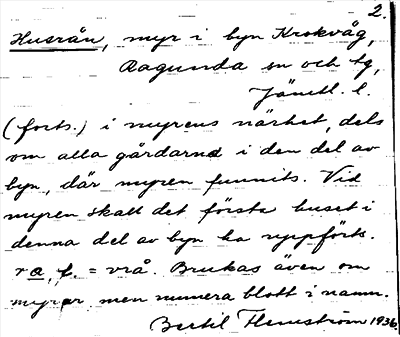 2.
Husrån, myr i byn Krokvåg,
Ragunda sn och tg,
Jämtl. l.
(forts.) i myrens närhet, dels
om alla gårdarna i den del av
byn, där myren funnits. Vid
myren skall det första huset i
denna del av byn ha uppförts.
= vrå. Brukas även om
myrar men numera blott i namn.
Bertil Flemström 1936.